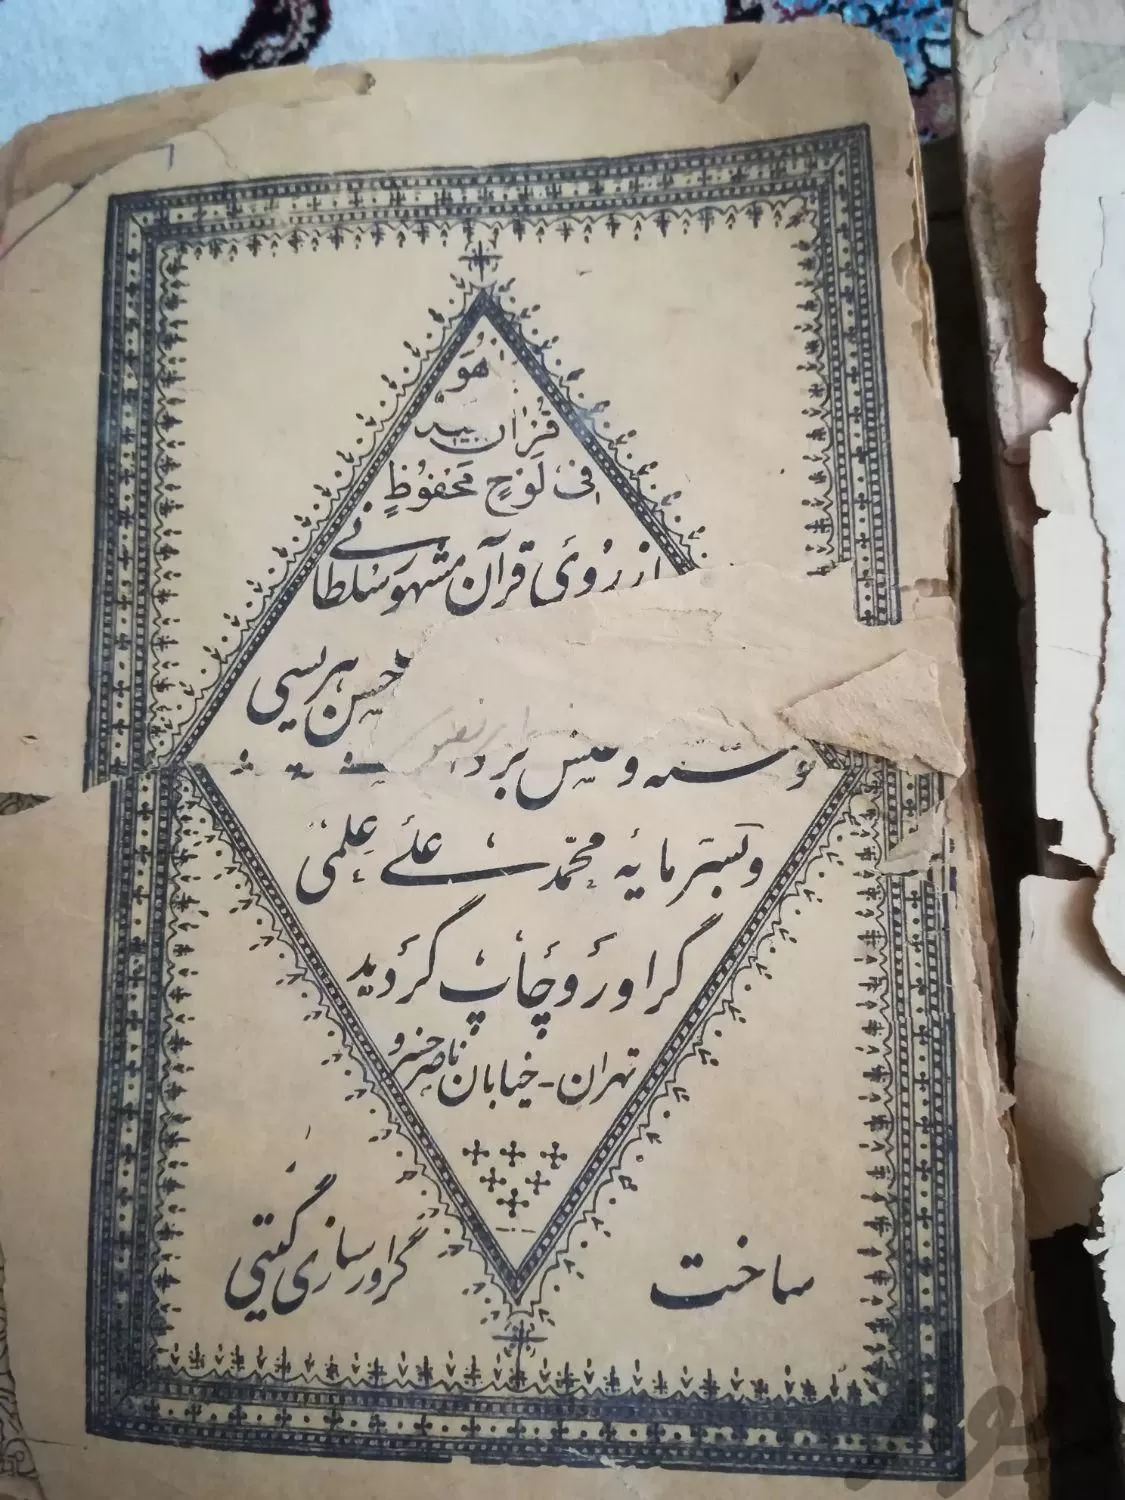 هُوَ
قُرْآن
فی لَوْحٍ مَحْفُوظٍ
از رُویِ قرآن مشهور سلطانی
حسن هریسی
نوشته و عکس بردا
و بسَرمایهٔ محمّد علی عِلمی
گراوُر و چاپ گردید
تهران - خیابان ناصر خسرو
ساخت گراورسازی گیتی